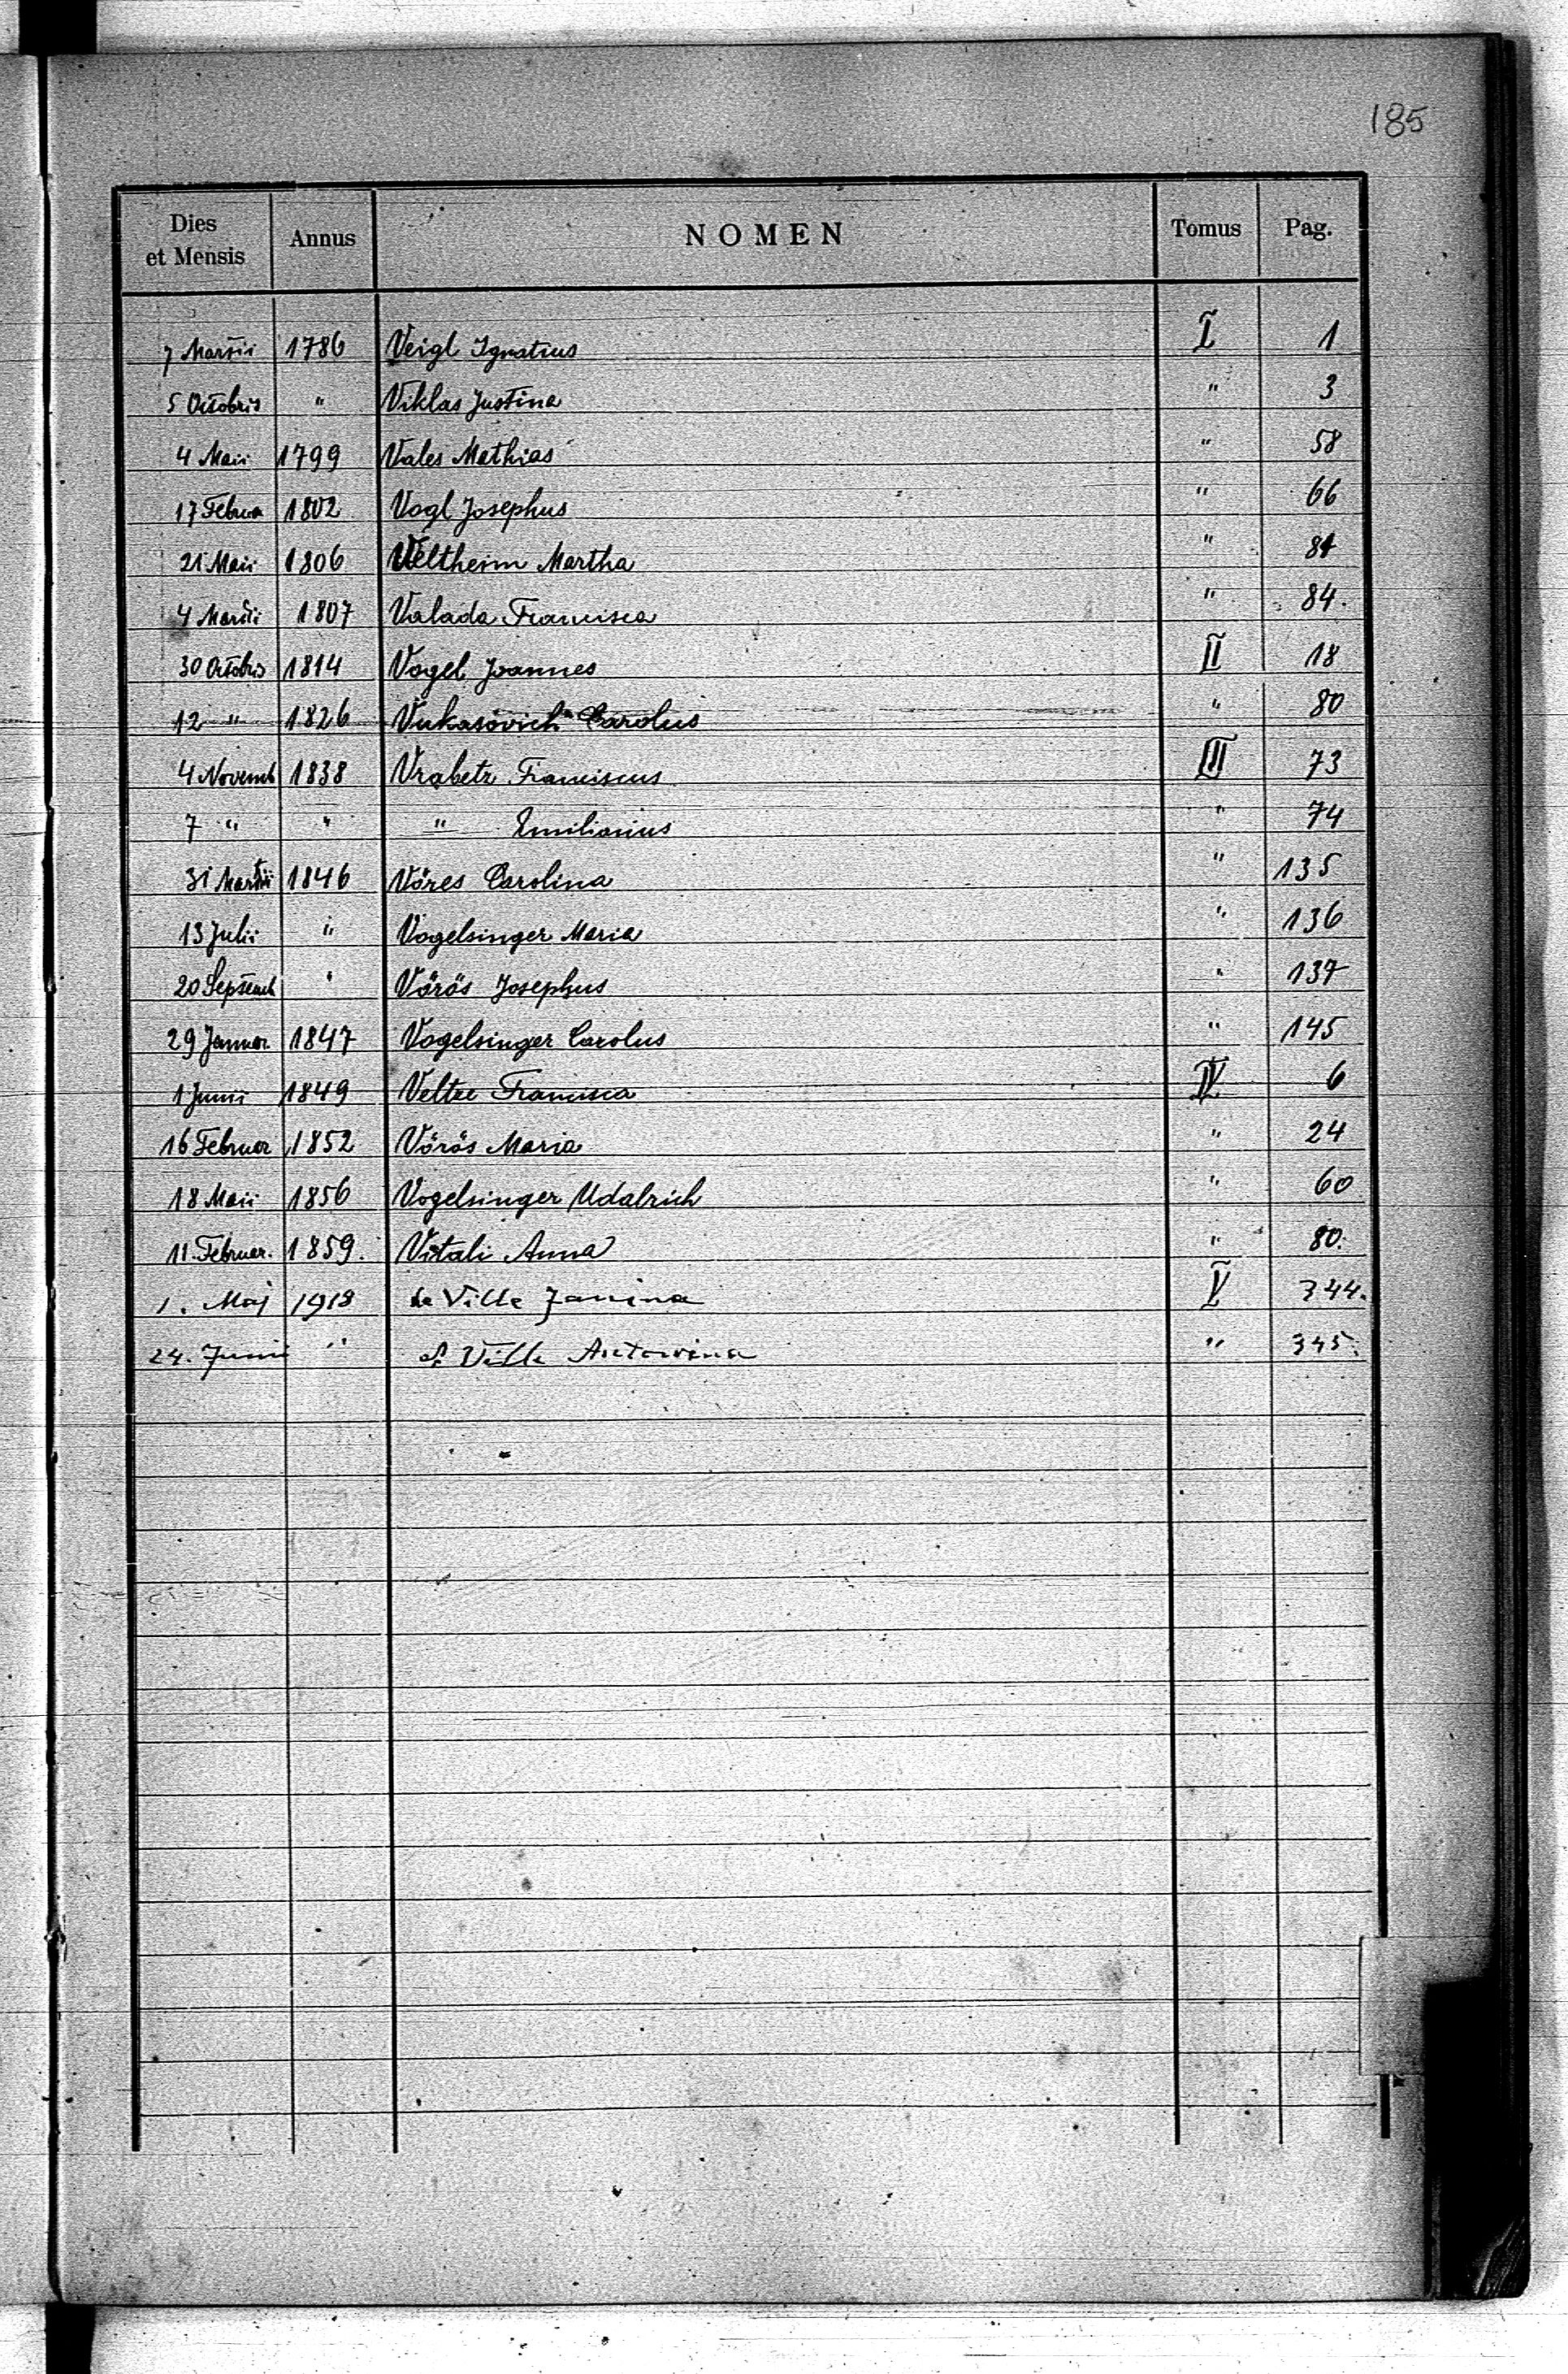 185
Dies et Mensis Annus NOMEN Tomus Pag.
7 Martii 1786 Veigl Ignatius I 1
5 Octobris " Viklas Justina " 3
4 Maii 1799 Vales Mathias " 58
17 Februa 1802 Vogl Josephus " 66
21 Maii 1806 Veltheim Martha " 81
4 Martii 1807 Valada Francisca " 84.
30 Octobris 1814 Vogel Joannes II 18
12 " 1826 Vukasovich Carolus " 80
4 Novemb 1838 Vrabetz Franciscus III 73
7 " " " Emilianus " 74
31 Martii 1846 Vöres Carolina " 135
13 Julii " Vogelsinger Maria " 136
20 Septemb " Vörös Josephus " 137
29 Januar. 1847 Vogelsinger Carolus " 145
1 Junii 1849 Veltze Francisca IV 6
16 Februar 1852 Vörös Maria " 24
18 Maii 1856 Vogelsinger Udalrich " 60
11. Februar. 1859. Vitali Anna " 80.
1. Maj 1918 de Ville Janina V 344.
24. Junii " de Ville Antonina " 345.